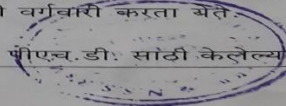 वर्गवारी करता येते.
पीएच.डी. साठी केलेल्य